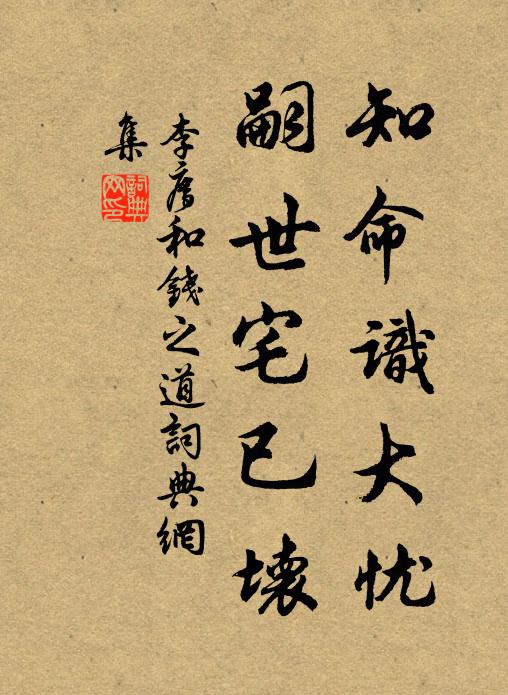 知命識大忧
嗣世宅已壞
李廌和錢之道詞典網
集
詞典
网印